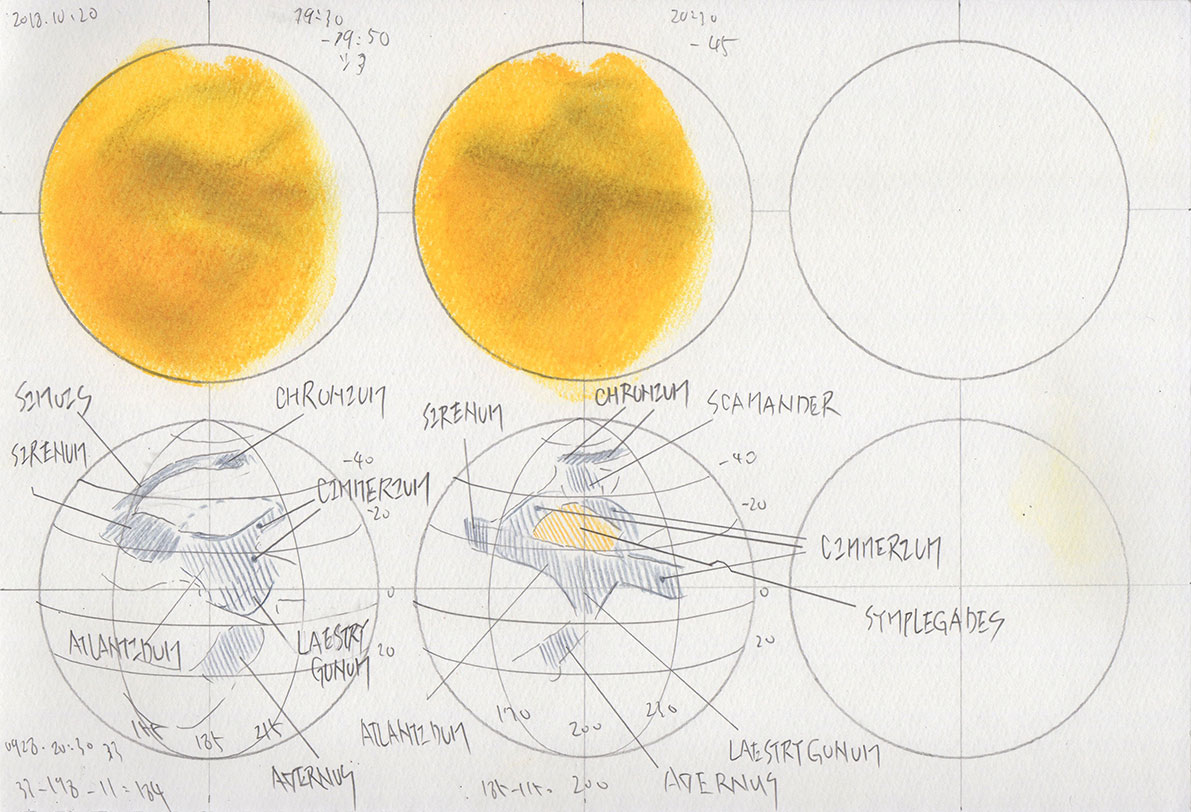 2018.10.20
19:30
-19:50
20:30
-45
SIMOIS
CHRONIUM
SIRENUM
-40
CIMMERIUM
-20
0
ATLANTIDUM
LAESTRY
GONUM
20
185
215
AVERNUS
SIRENUM
CHRONIUM
SCAMANDER
-40
-20
CIMMERIUM
0
SYMPLEGADES
20
170
200
230
ATLANTIDUM
LAESTRYGONUM
AVERNUS
200